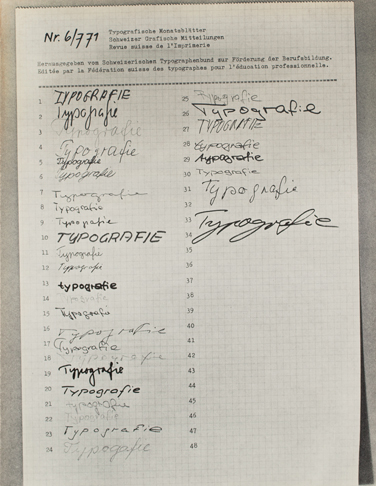 Nr. 6/771
Typografische Monatsblätter
Schweizer Grafische Mitteilungen
Revue suisse de l'Imprimerie
Herausgegeben vom Schweizerischen Typographenbund zur Förderung der Berufsbildung.
Editée par la Fédération suisse des typographes pour l'éducation professionnelle.
1 TYPOGRAFIE
2 Typografie
3 Typografie
4 Typografie
5 Typografie
6 Typografie
7 Typografie
8 Typografie
9 Typografie
10 TYPOGRAFIE
11 Typografie
12 Typografie
13 typografie
14
15 Typografie
16 Typografie
17 Typografie
18 Typografie
19 Typografie
20 Typografie
21 typografie
22 Typografie
23 Typografie
24 Typografie
25 Typografie
26 Typografie
27 TYPOGRAFIE
28 typografie
29 typografie
30 Typografie
31 Typografie
32
33 Typografie
34
35
36
37
38
39
40
41
42
43
44
45
46
47
48